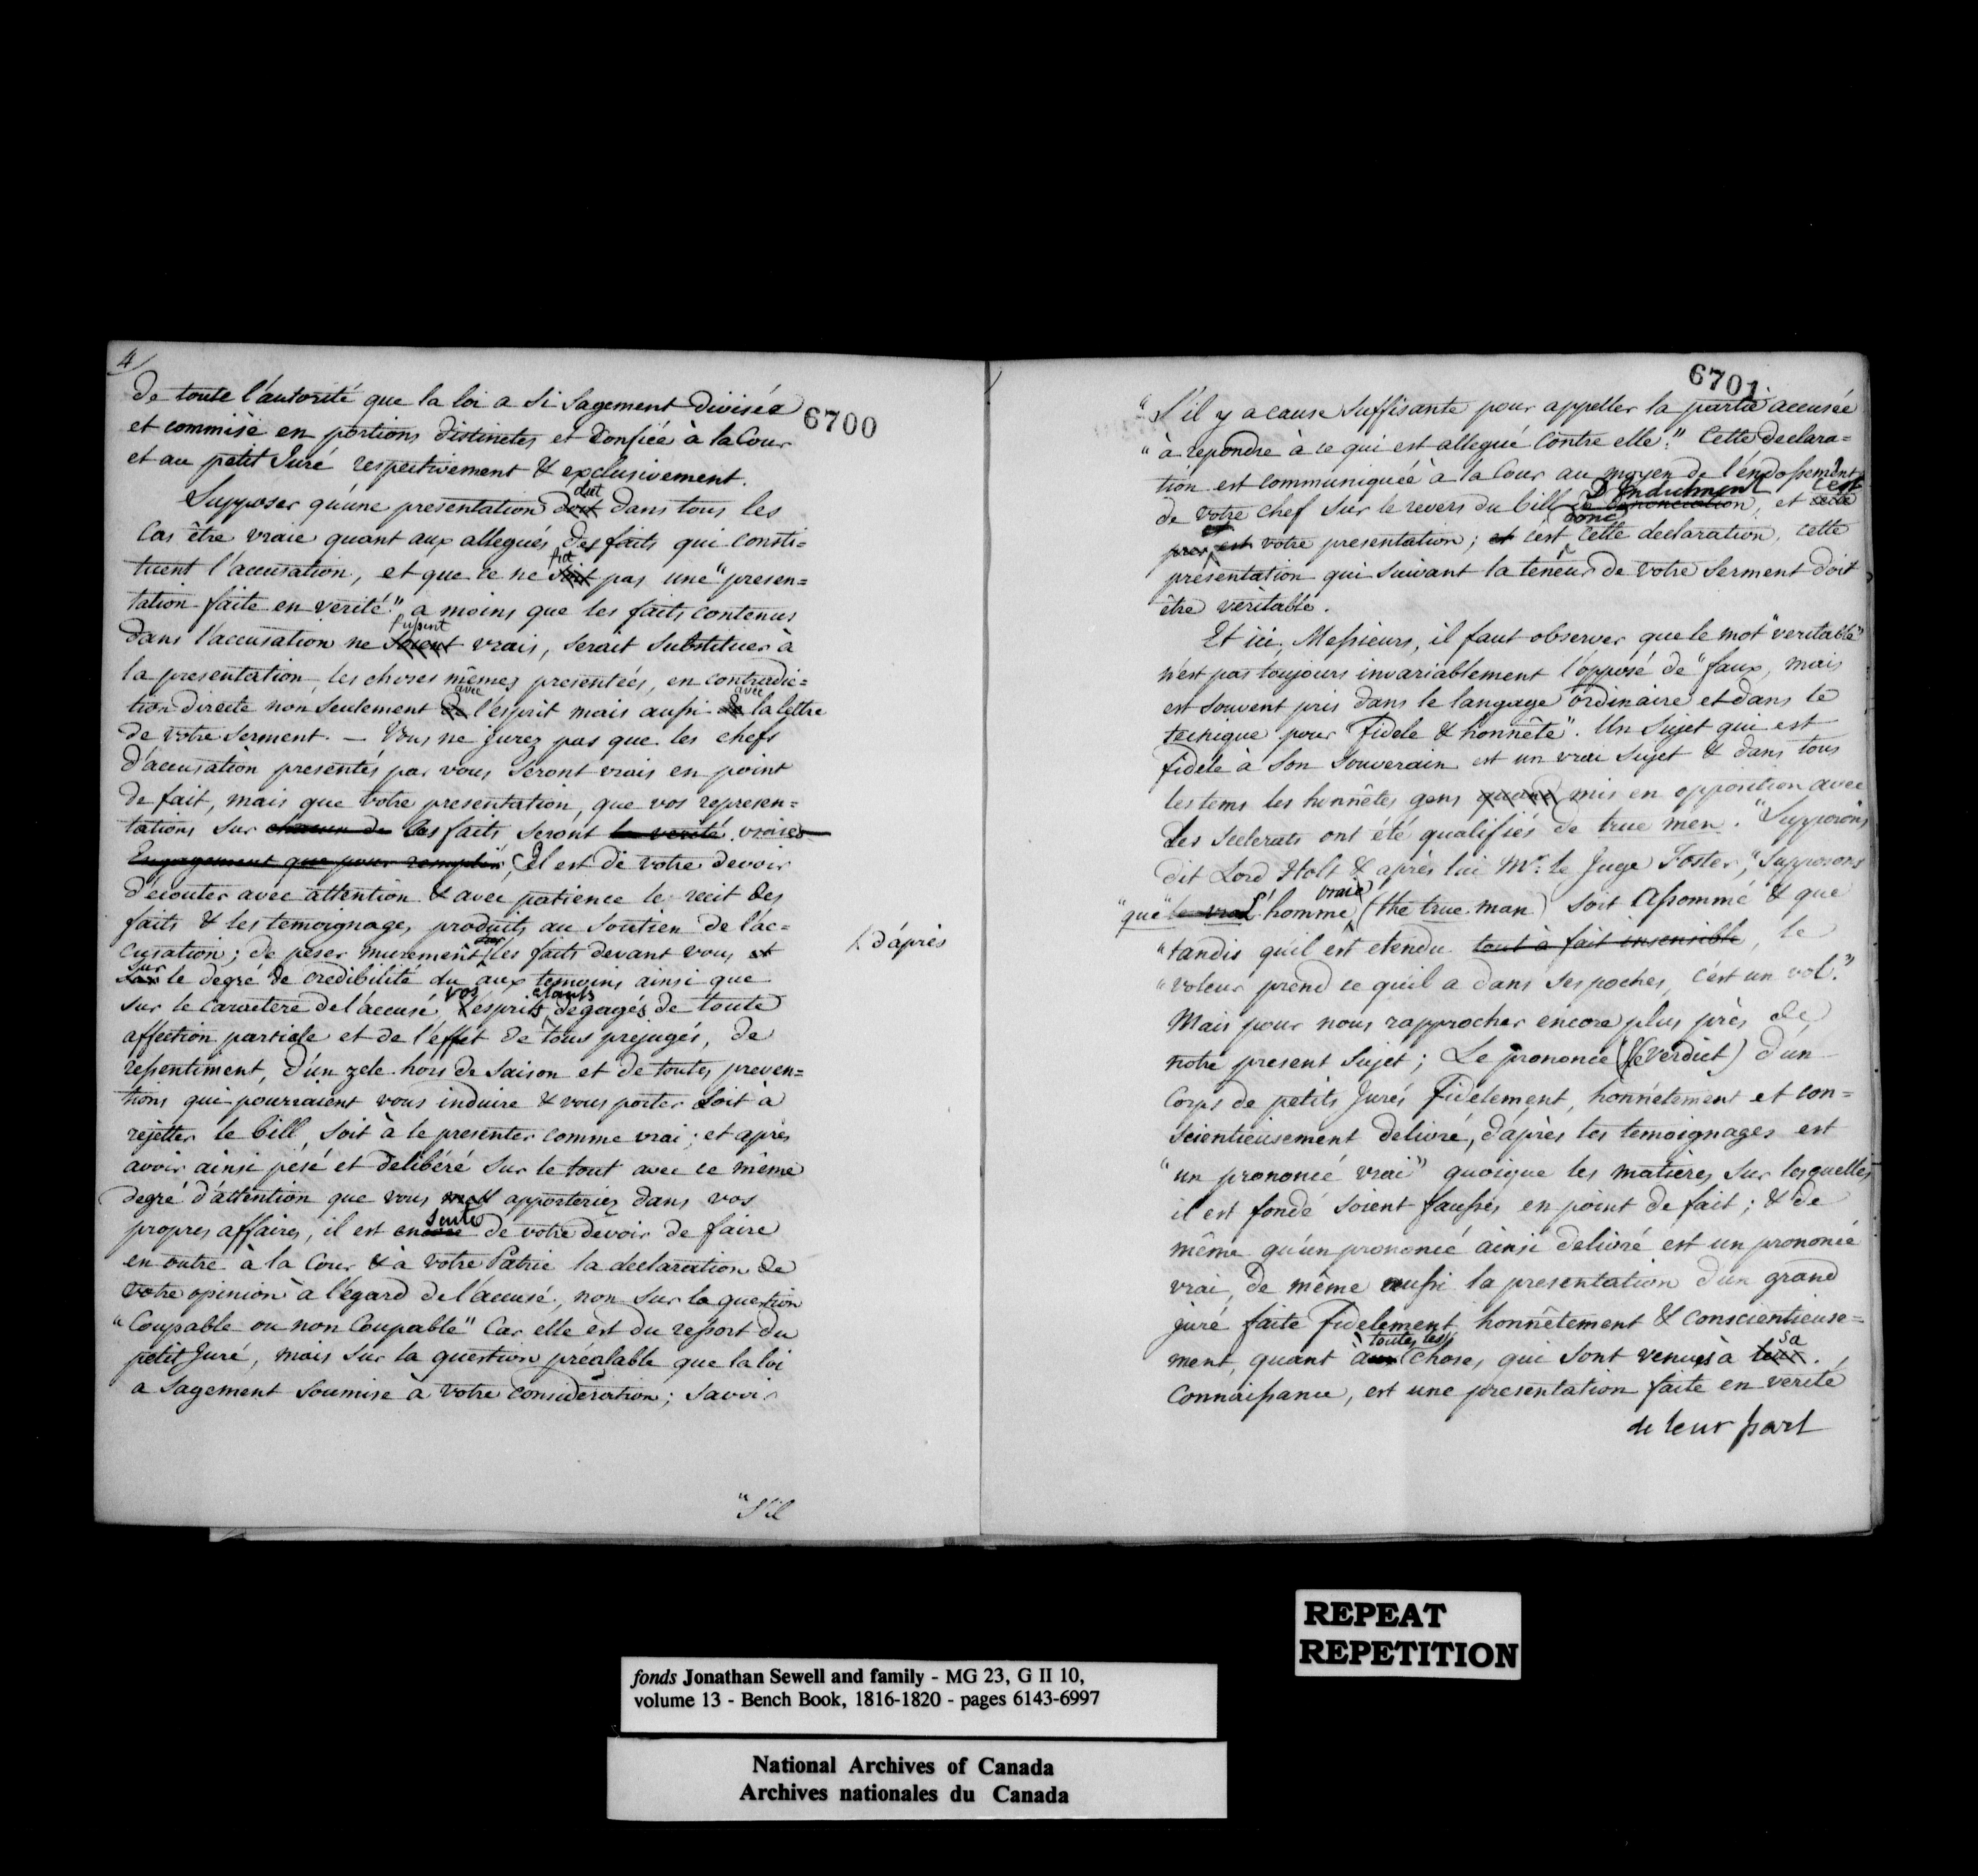 4/
6700
de toute l'autorité que la loi a si sagement divisée
et commise en portions distinctes et confiée à la Cour
et au petit Juré respectivement & exclusivement.
Supposer qu'une presentation doit dut dans tous les
Cas être vraie quant aux allegués des faits qui consti=
tuent l'accusation, et que ce ne soit fut pas une "presen=
tation faite en verité" a moins que les faits contenus
dans l'accusation ne soient fussent vrais, serait substituer à
la presentation, les choses mêmes presentées, en contradic=
tion directe non seulement de avec l'esprit mais aussi de avec la lettre
de votre serment. — Vous ne jurez pas que les chefs
d'accusation presentés par vous seront vrais en point
de fait, mais que votre presentation, que vos represen=
tations sur chacun de ces faits seront la verité vraies
Engagement que pour remplir, Il est de votre devoir
d'écouter avec attention & avec patience le recit des
faits & les temoignages produits au soutien de l'ac=
cusation; de peser murement les faits devant vous et
/. d'après
sur le degré de credibilité du aux temoins ainsi que
sur le caractere de l'accusé, vos esprits étants degagés de toute
affection partiale et de l'effet de tous prejugés, de
ressentiment, d'un zele hors de saison et de toutes preven=
tions qui pourraient vous induire & vous porter soit à
rejetter le bill, soit à le presenter comme vrai; et après
avoir ainsi pésé et delibéré sur le tout avec ce même
degré d'attention que vous apporteriez dans vos
propres affaires, il est encore suite de votre devoir de faire
en outre à la Cour & à votre Patrie la declaration de
votre opinion à l'égard de l'accusé, non sur la question
"Coupable ou non Coupable" Car elle est du ressort du
petit Juré, mais sur la question préalable que la loi
a sagement soumise à votre consideration; savoir
"S'il
6701
"S'il y a cause suffisante pour appeller la partie accusée
"à repondre à ce qui est allegué contre elle." Cette declara=
tion est communiquée à la Cour au moyen de l'endossement
de votre chef sur le revers du bill de denonciation D'Indictment, et cette c'est
votre presentation; et c'est donc cette declaration, cette
presentation qui suivant la teneur de votre serment doit
être veritable.
Et ici, Messieurs, il faut observer que le mot "veritable"
n'est pas toujours invariablement l'opposé de "faux, mais
est souvent pris dans le langage ordinaire et dans le
tecnique pour "Fidele & honnête". Un Sujet qui est
fidele à son souverain est un vrai sujet & dans tous
les tems les honnêtes gens mis en opposition avec
des scelerats ont été qualifiés de true men. "Supposons,
dit Lord Holt & après lui Mr. le Juge Foster, "Supposons
"que" le vrai L'homme vraie (the true man) soit assommé & que
"tandis qu'il est etendu tout à fait insensible, le
"voleur prend ce qu'il a dans ses poches, c'est un vol."
Mais pour nous rapprocher encore plus près de
notre present sujet; Le prononcé (le verdict) d'un
Corps de petits Jurés Fidelement, honnêtement et con=
scientieusement delivré, d'après les temoignages est
"un prononcé vrai" quoique les matières sur lesquelles
il est fondé soient fausses en point de fait; & de
même qu'un prononcé ainsi delivré est un prononcé
vrai, de même aussi la presentation d'un grand
juré faite Fidelement, honnêtement & conscientieuse=
ment, quant aux à toutes les choses qui sont venues à leur sa
Connaissance, est une presentation faite en verité
de leur part
REPEAT
REPETITION
fonds Jonathan Sewell and family - MG 23, G II 10,
volume 13 - Bench Book, 1816-1820 - pages 6143-6997
National Archives of Canada
Archives nationales du Canada